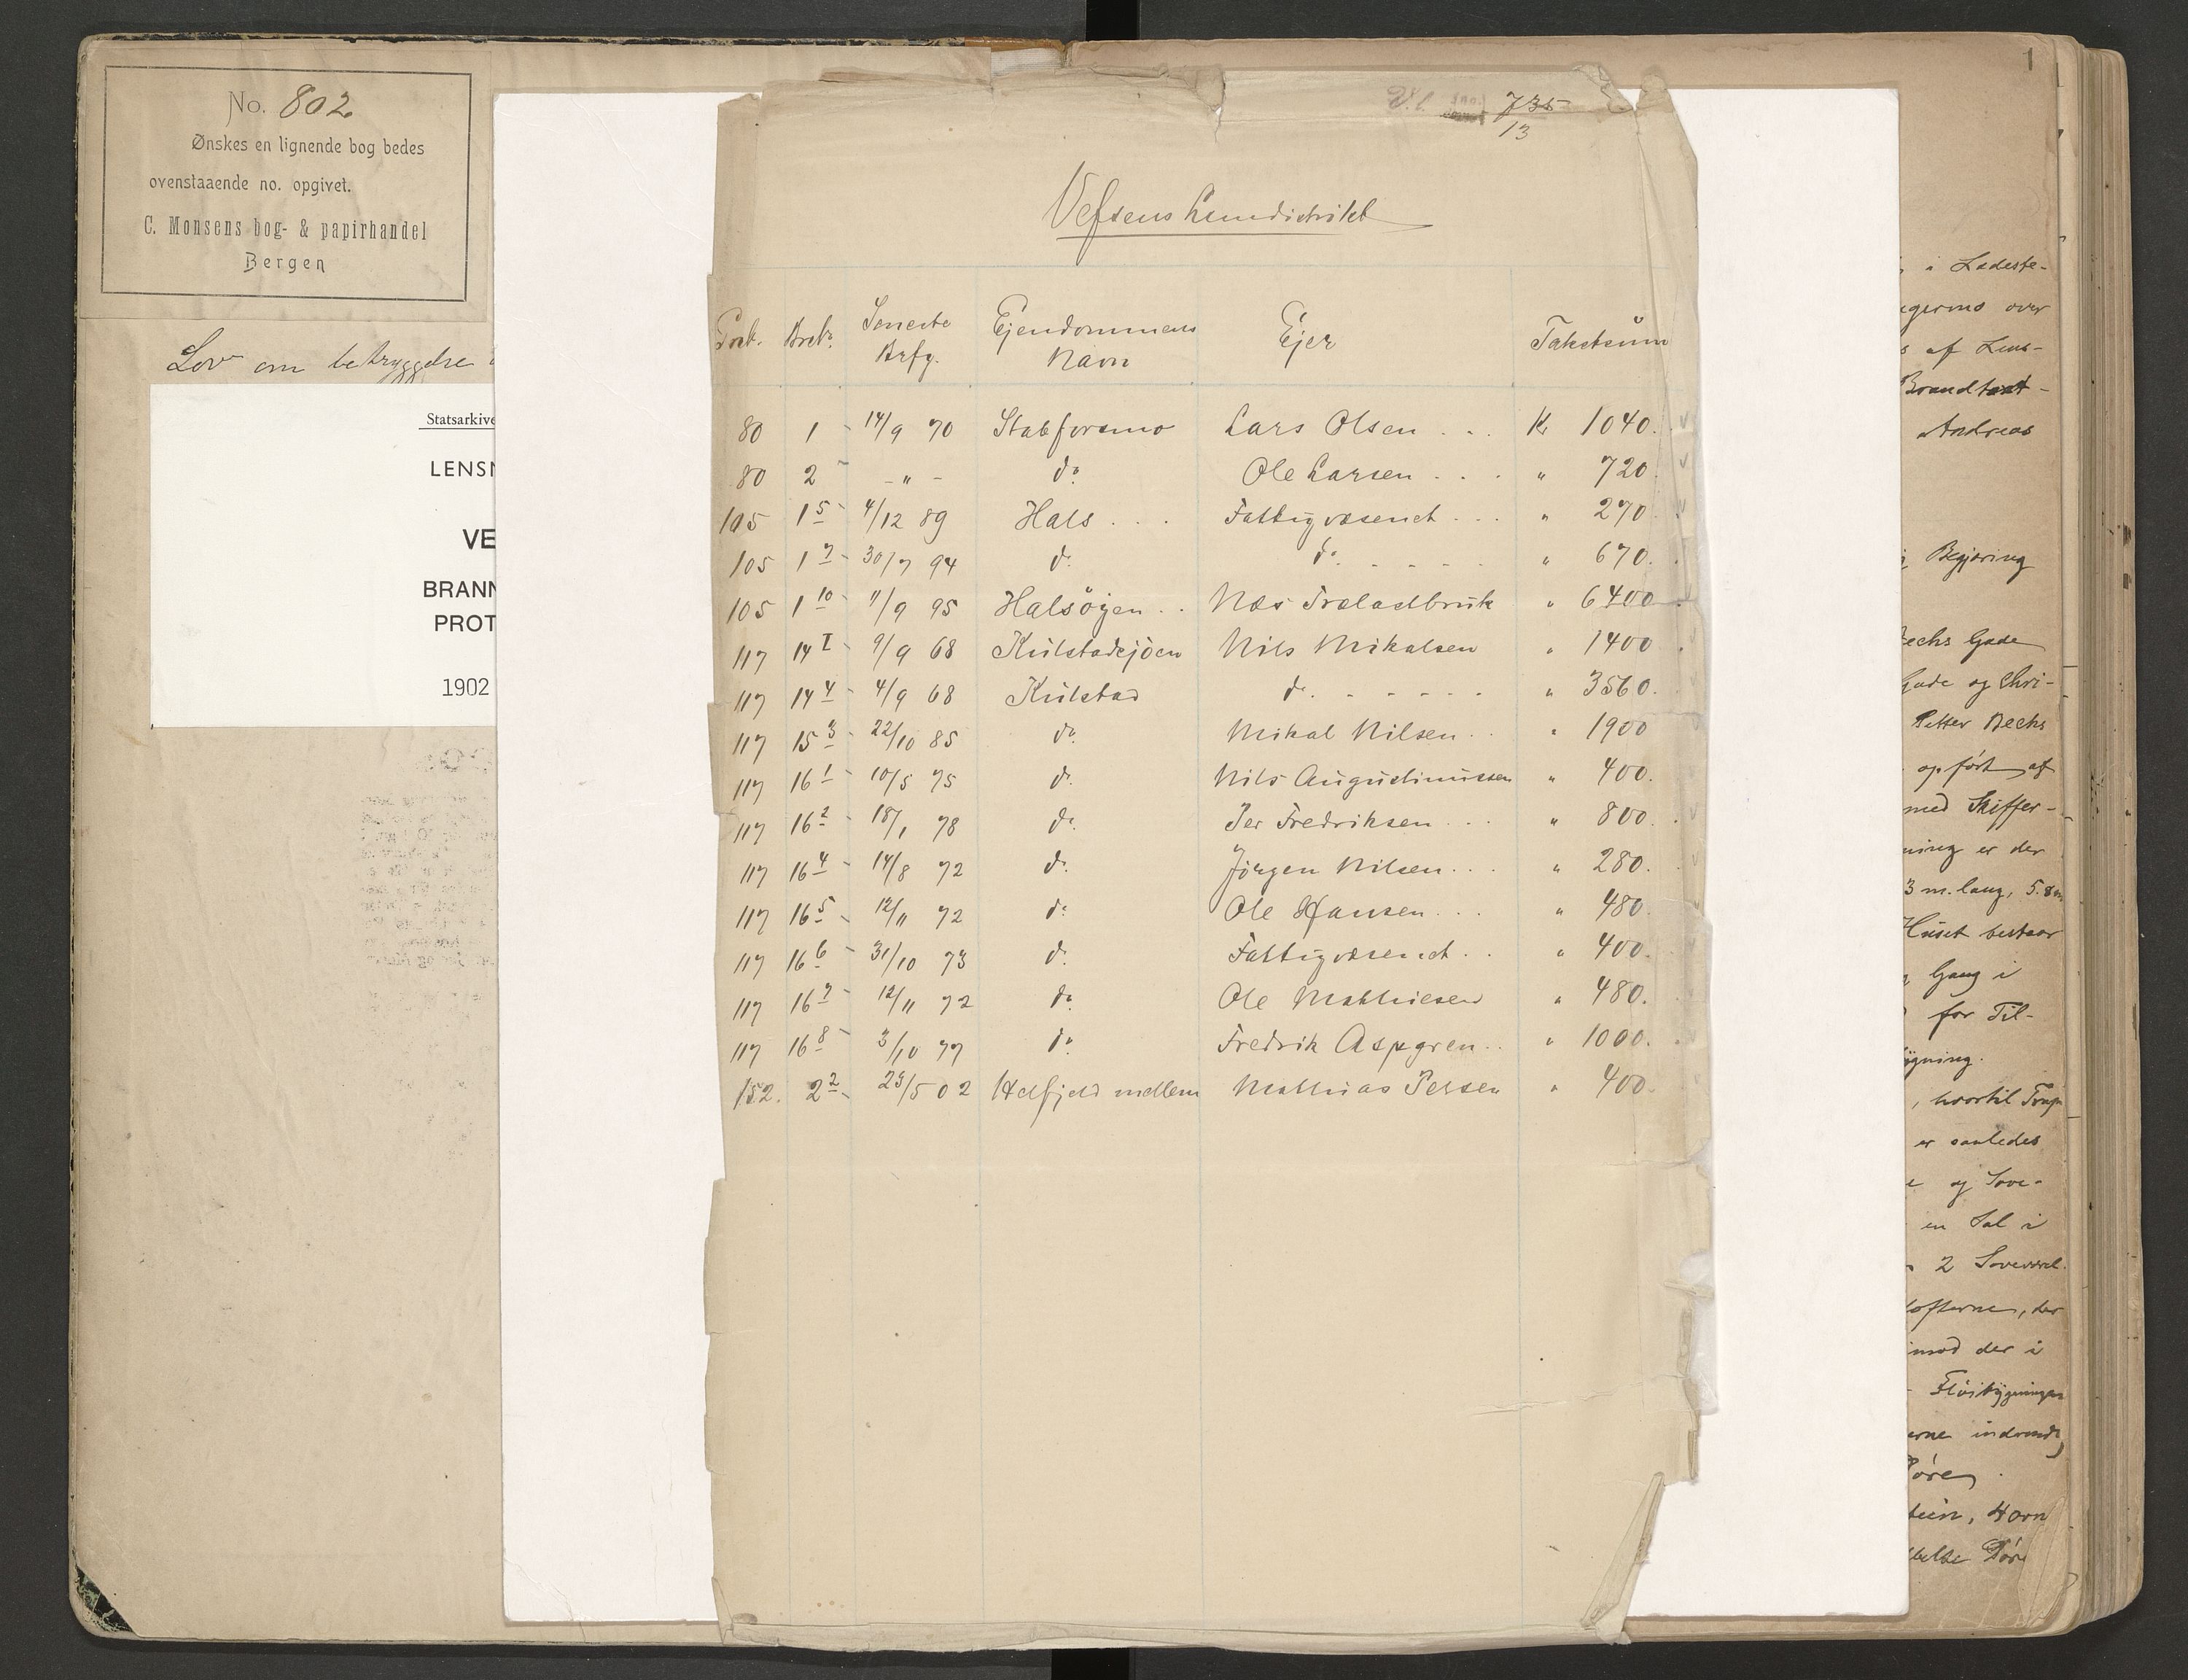 No. 802
Ønskes en lignende bog bedes
ovenstaaende no. opgivet.
C. Monsens bog- & papirhandel
Bergen
Lov om betryggelse
Statsarkive
LENSN
VE
BRANN
PROT
1902
735
13
Vefsens Lensdistrikt
Gnb. Brb. Seneste Brfg. Ejendommens Navn Ejer Takstsum
80 1 - 14/9 70 Stabforsmo Lars Olsen . . . Kr 1040.
80 2 - - " - do. Ole Larsen . . . " 720.
105 1 5 - 4/12 89 Hals . . . Fattigvæsenet . . . " 270.
105 1 7 - 30/7 94 do. do. - - - - - " 670.
105 1 10 - 11/9 95 Halsøyen . . Næs Træladbruk " 6400
117 14 1 - 9/9 68 Kulstadsjøen Nils Mikalsen " 1400
117 14 4 - 4/9 68 Kulstad do. - - - - - " 3560.
117 15 3 - 22/10 85 do. Mikal Nilsen . . " 1900
117 16 1 - 10/5 75 do. Nils Augustinussen " 400.
117 16 2 - 18/1 78 do. Per Fredriksen . . . " 800.
117 16 4 - 14/8 72 do. Jørgen Nilsen . . . " 280.
117 16 5 - 12/11 72 do. Ole Hansen . . . " 480.
117 16 6 - 31/10 73 do. Fattigvæsenet . . " 400.
117 16 7 - 12/11 72 do. Ole Mathiesen " 480.
117 16 8 - 3/10 77 do. Fredrik Aspgren . . " 1000.
152. 2 2 - 23/5 02 Helfjeld mellem Mathias Persen " 400.
1
i Ladeste-
over
af Lens-
Brandtaxt-
Andreas
Begjæring
echs Gade
Gade og Chri-
Petter Bechs
opført af
med Skiffer-
ning er der
3 m. lang, 5.8 m
Huset bestaar
Gang i
for Til-
ygning.
, hvortil Trap
er saaledes
og Sove-
en Sal i
2 Soveværel.
lofterne, der
imod der i
Fløibygningen
erne indvendig
Døre,